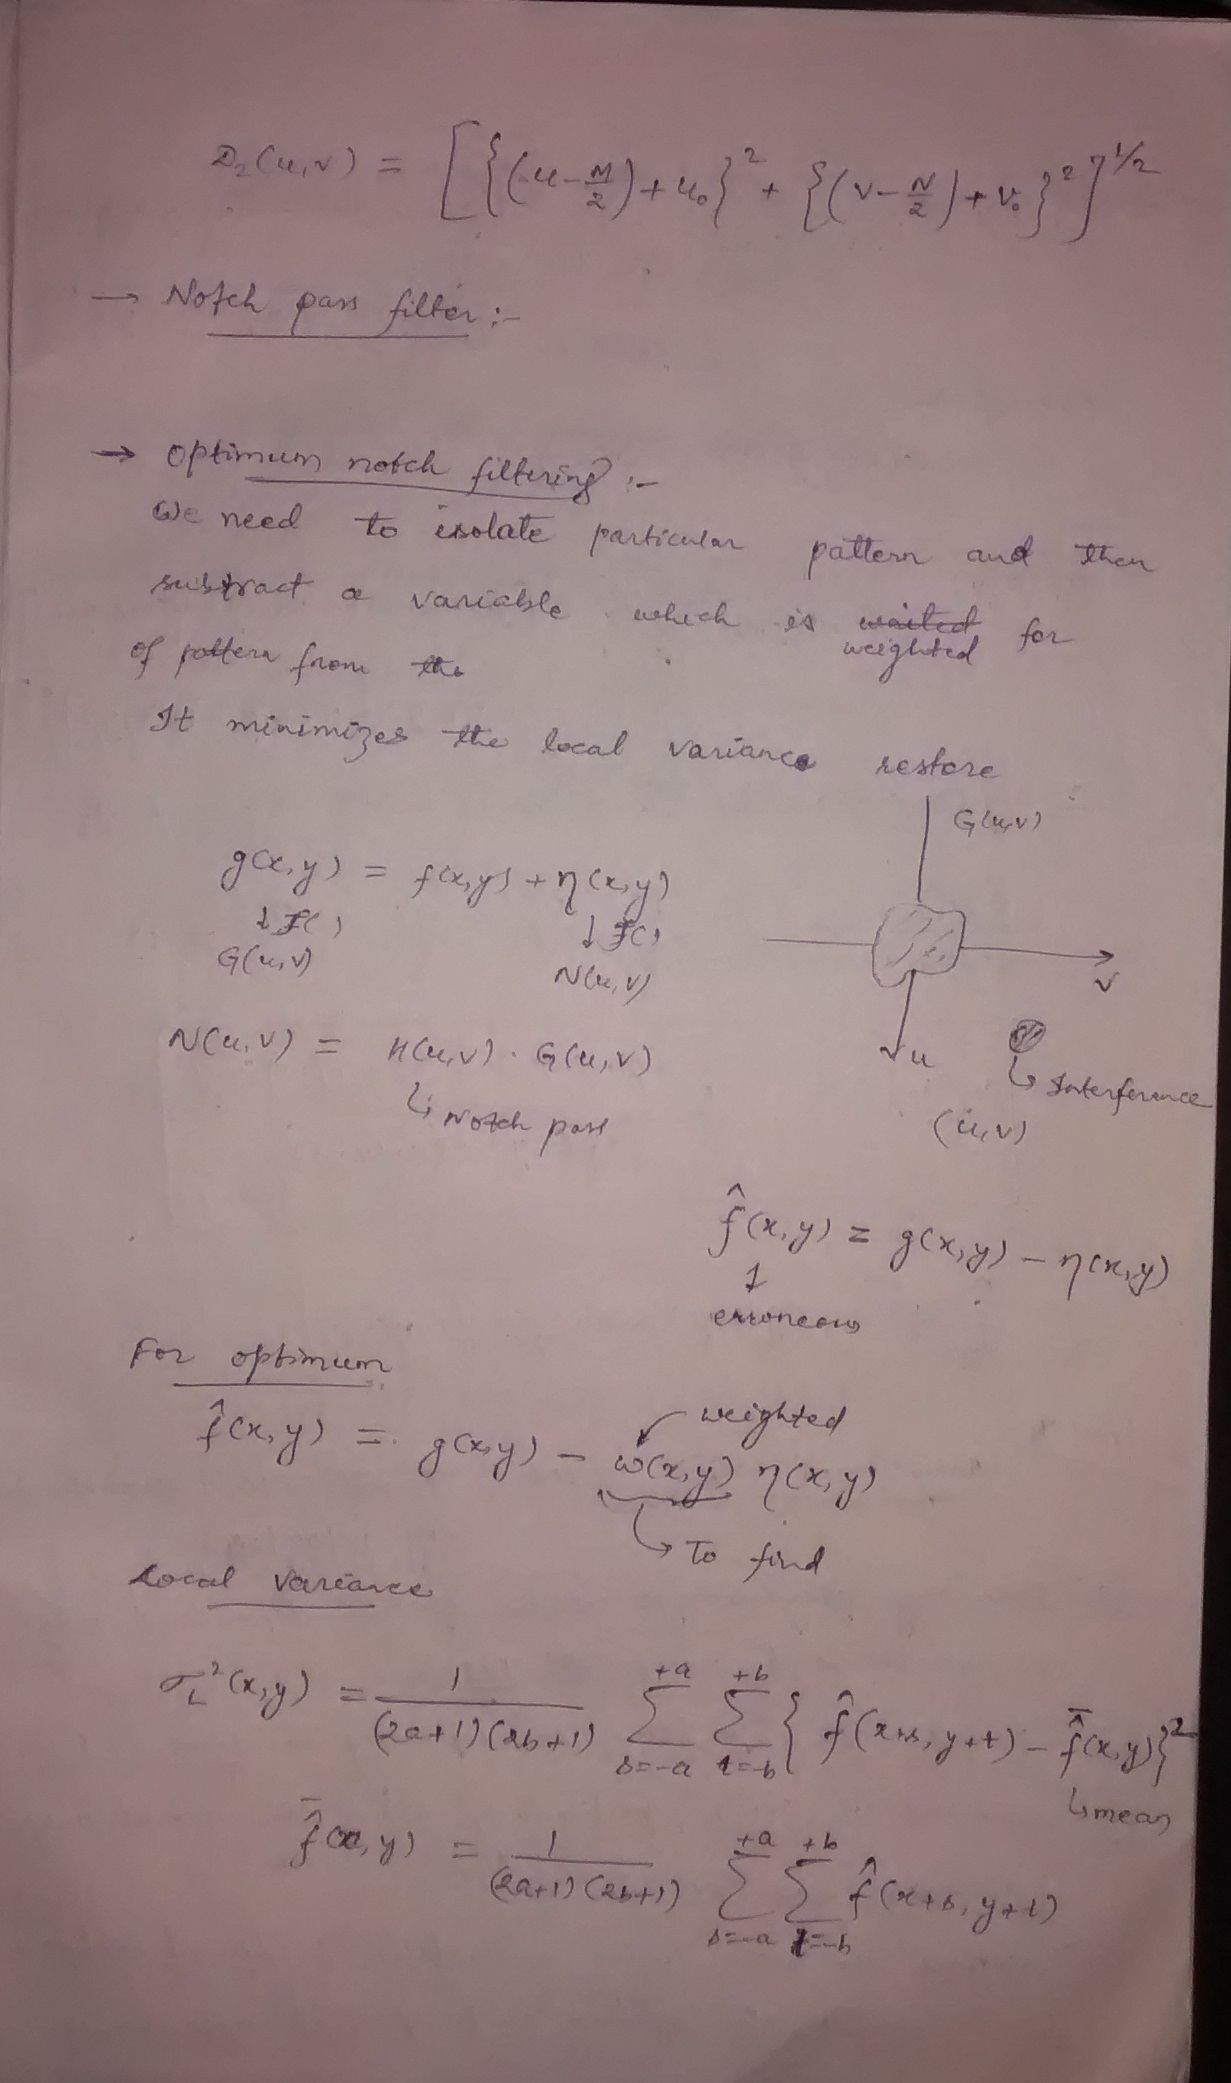 D₂(u,v) = [{(u-M/2)+u₀}² + {(v-N/2)+v₀}²]^1/2
→ Notch pass filter :-
→ Optimum notch filtering :-
We need to isolate particular pattern and then
subtract a variable which is waited for
weighted
of pattern from the
It minimizes the local variance restore
G(u,v)
g(x,y) = f(x,y) + η(x,y)
↓ F( ) ↓ F( )
G(u,v) N(u,v)
v
N(u,v) = H(u,v) · G(u,v)
u
↳ Interference
↳ Notch pass
(u,v)
f̂(x,y) = g(x,y) - η(x,y)
↓
erroneous
For optimum
weighted
f̂(x,y) = g(x,y) - ω(x,y) η(x,y)
↳ To find
Local variance
σ_L²(x,y) = 1/(2a+1)(2b+1) Σ_{s=-a}^{+a} Σ_{t=-b}^{+b} { f̂(x+s, y+t) - f̂̄(x,y)}²
↳ mean
f̂̄(x,y) = 1/(2a+1)(2b+1) Σ_{s=-a}^{+a} Σ_{t=-b}^{+b} f̂(x+s, y+t)